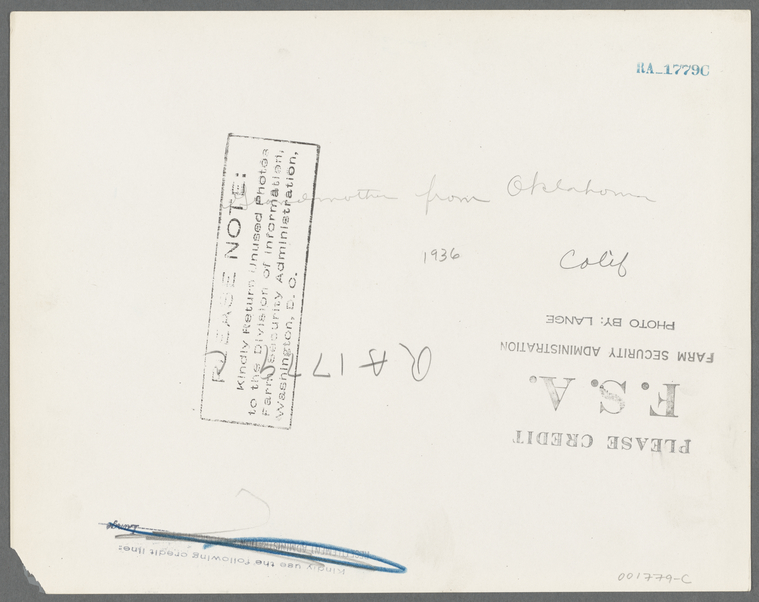 RA_1779C
Grandmother from Oklahoma
1936
Calif
PLEASE NOTE:
Kindly Return Unused Photos
to the Division of Information,
Farm Security Administration,
Washington, D. C.
RA 177
PLEASE CREDIT
F.S.A.
FARM SECURITY ADMINISTRATION
PHOTO BY: LANGE
Kindly use the following credit line:
RESETTLEMENT ADMINISTRATION
001779-C